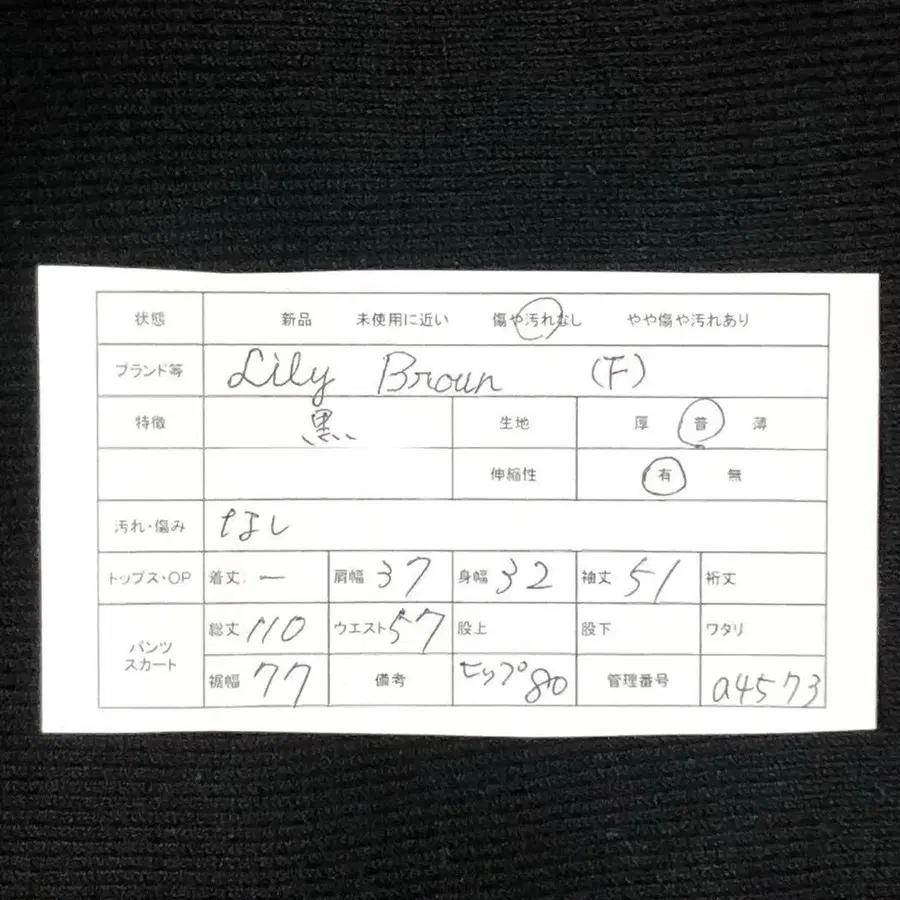 状態 新品 未使用に近い 傷や汚れなし やや傷や汚れあり
ブランド等 Lily Broun (F)
特徴 黒 生地 厚 普 薄
伸縮性 有 無
汚れ・傷み なし
トップス・OP 着丈 ー 肩幅 37 身幅 32 袖丈 51 裄丈
パンツ スカート 総丈 110 ウエスト 57 股上 股下 ワタリ
裾幅 77 備考 ヒップ80 管理番号 a4573